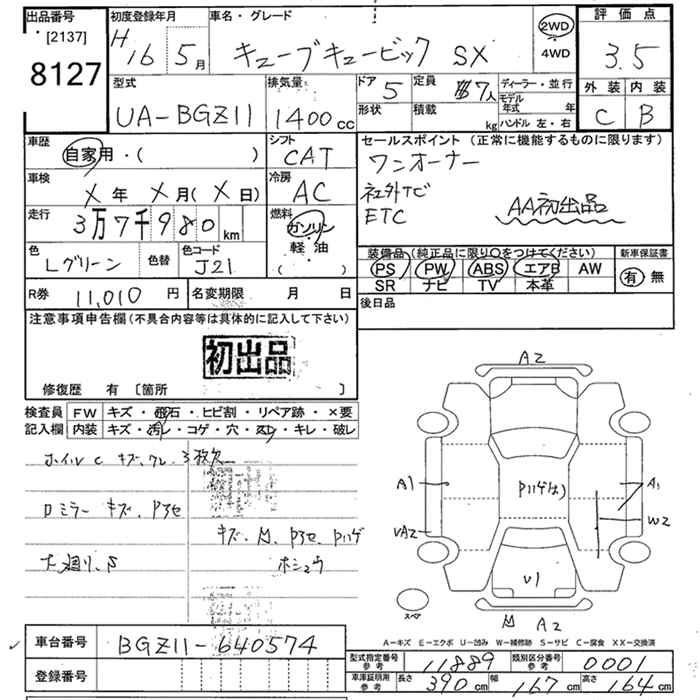 出品番号 初度登録年月 車名・グレード 2WD 評価点
[2137] H16 5月 キューブキュービック SX 4WD 3.5
8127
型式 排気量 ドア 5 定員 7人 ディーラー・並行 外装 内装
UA-BGZ11 1400cc 形状 積載 kg モデル年式 年 C B
ハンドル 左・右
車歴 シフト セールスポイント(正常に機能するものに限ります)
自家用・( ) CAT ワンオーナー
車検 冷房 社外ナビ
X年 X月(X日) AC ETC AA初出品
走行 燃料
3万7千980km ガソリン
軽油
( )
色 色替 色コード 装備品(純正品に限り○をつけてください) 新車保証書
Lグリーン J21 PS PW ABS エアB AW 有 無
SR ナビ TV 本革
R券 11,010円 名変期限 月 日 後日品
注意事項申告欄(不具合内容等は具体的に記入して下さい)
初出品
修復歴 有 〔箇所 〕
検査員 FW キズ・飛石・ヒビ割・リペア跡・×要
記入欄 内装 キズ・汚レ・コゲ・穴・スレ・キレ・破レ
A2
ホイルC キズ、ワレ、3枚欠
A1 A1
Dミラー キズ、
W2
キズ、
ホシュウ
U1
スペア
A2
A-キズ E-エクボ U-凹み W-補修跡 S-サビ C-腐食 XX-交換済
車台番号 BGZ11-640574
型式指定番号 参考 11889 類別区分番号 参考 0001
登録番号
車庫証明用 参考 長さ 390cm 幅 167cm 高さ 164cm